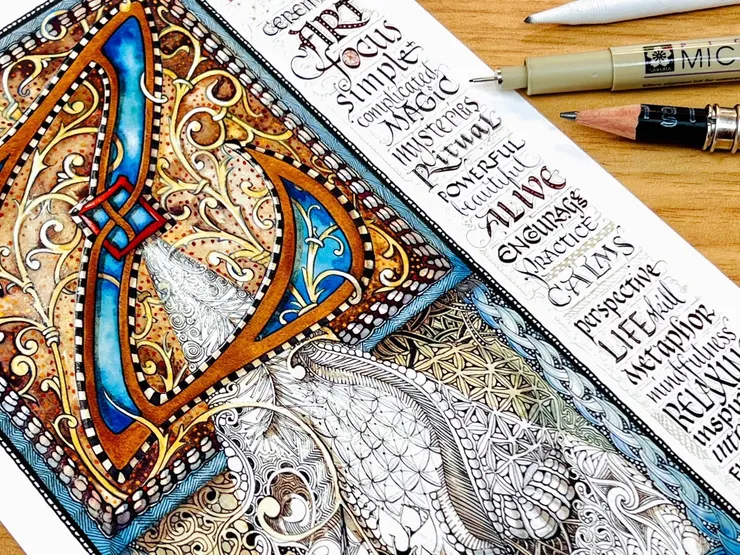 ART
FOCUS
simple
complicated
MAGIC
mysteries
Ritual
POWERFUL
beautiful
ALIVE
ENCOURAGES
PRACTICE
CALMS
perspective
LIFE skill
metaphor
mindfulness
RELAXIN
inspi
MIC